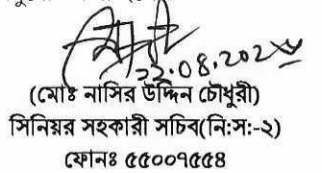 ২২.০৪.২০২৫
(মোঃ নাসির উদ্দিন চৌধুরী)
সিনিয়র সহকারী সচিব(নি:স:-২)
ফোনঃ ৫৫০০৭৫৫৪